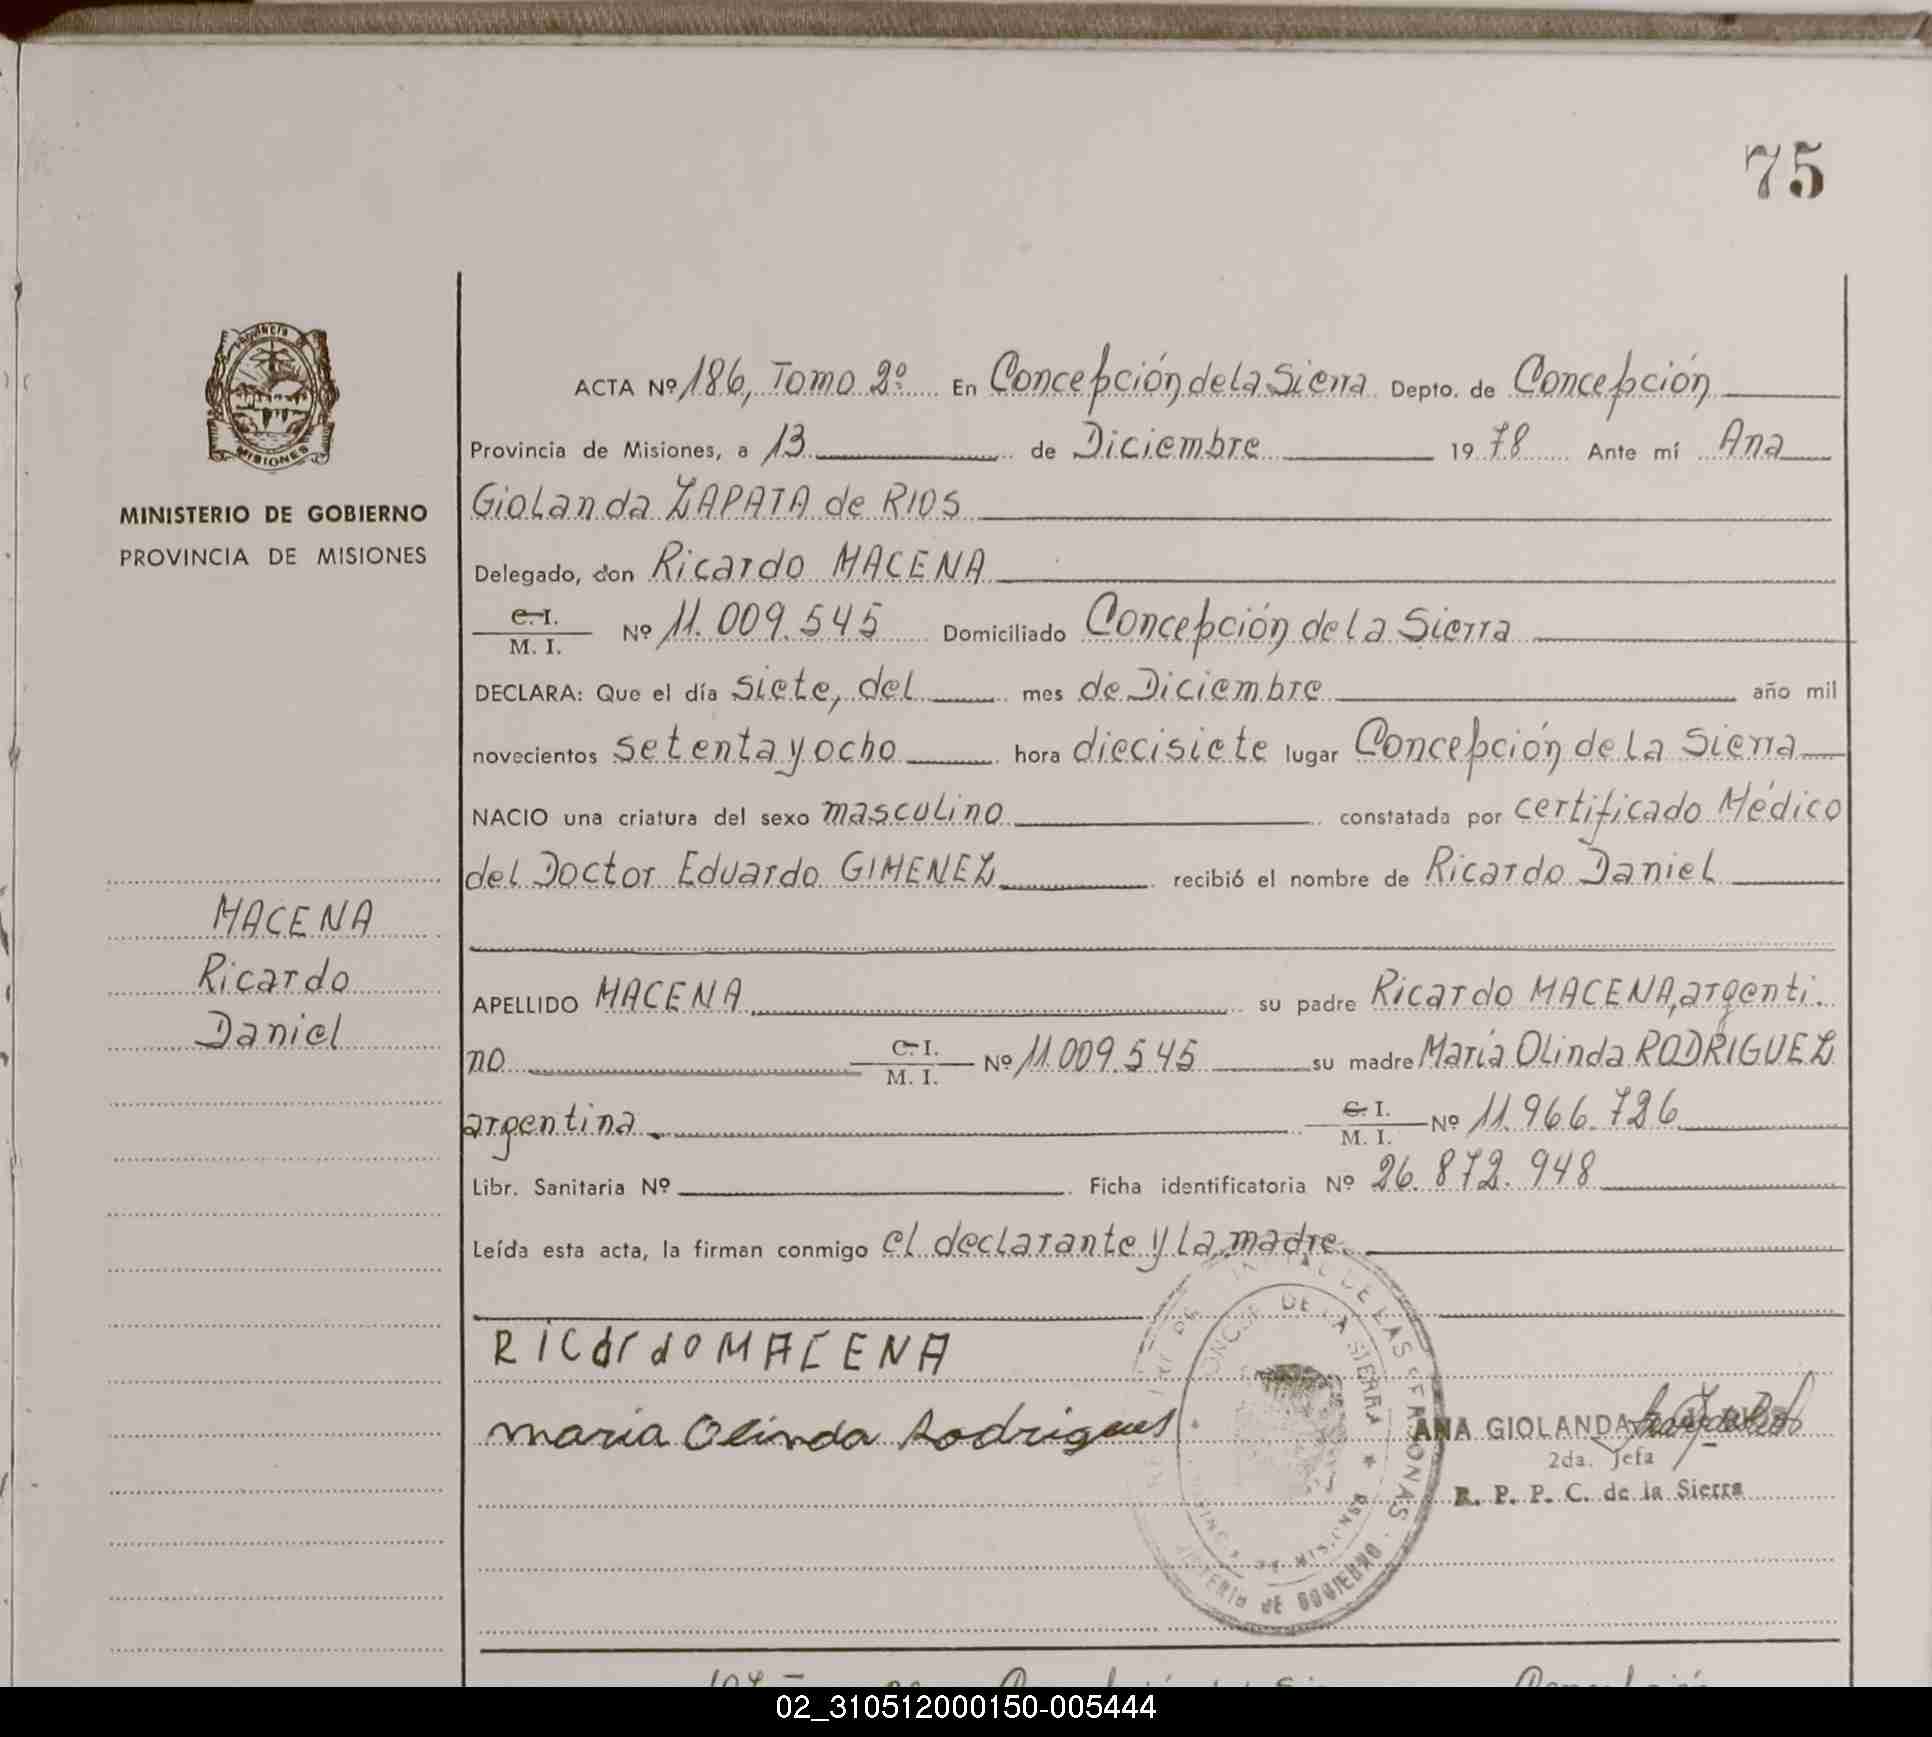 75
MINISTERIO DE GOBIERNO
PROVINCIA DE MISIONES
MACENA
Ricardo
Daniel
ACTA Nº 186, Tomo 2º En Concepción de la Sierra Depto. de Concepción
Provincia de Misiones, a 13 de Diciembre 1978 Ante mí Ana
Giolanda ZAPATA de RIOS
Delegado, don Ricardo MACENA
C. I.
M. I. Nº 11.009.545 Domiciliado Concepción de la Sierra
DECLARA: Que el día siete, del mes de Diciembre año mil
novecientos setenta y ocho hora diecisiete lugar Concepción de la Sierra
NACIO una criatura del sexo masculino constatada por certificado Médico
del Doctor Eduardo GIMENEZ recibió el nombre de Ricardo Daniel
APELLIDO MACENA su padre Ricardo MACENA, argenti-
no C. I. M. I. Nº 11.009.545 su madre María Olinda RODRIGUEZ
argentina. C. I. M. I. Nº 11.966.726
Libr. Sanitaria Nº Ficha identificatoria Nº 26.872.948
Leída esta acta, la firman conmigo el declarante y la madre.
Ricardo MACENA
maria Olinda Rodrigues
ANA GIOLANDA
2da. Jefa
R. P. P. C. de la Sierra
02_310512000150-005444